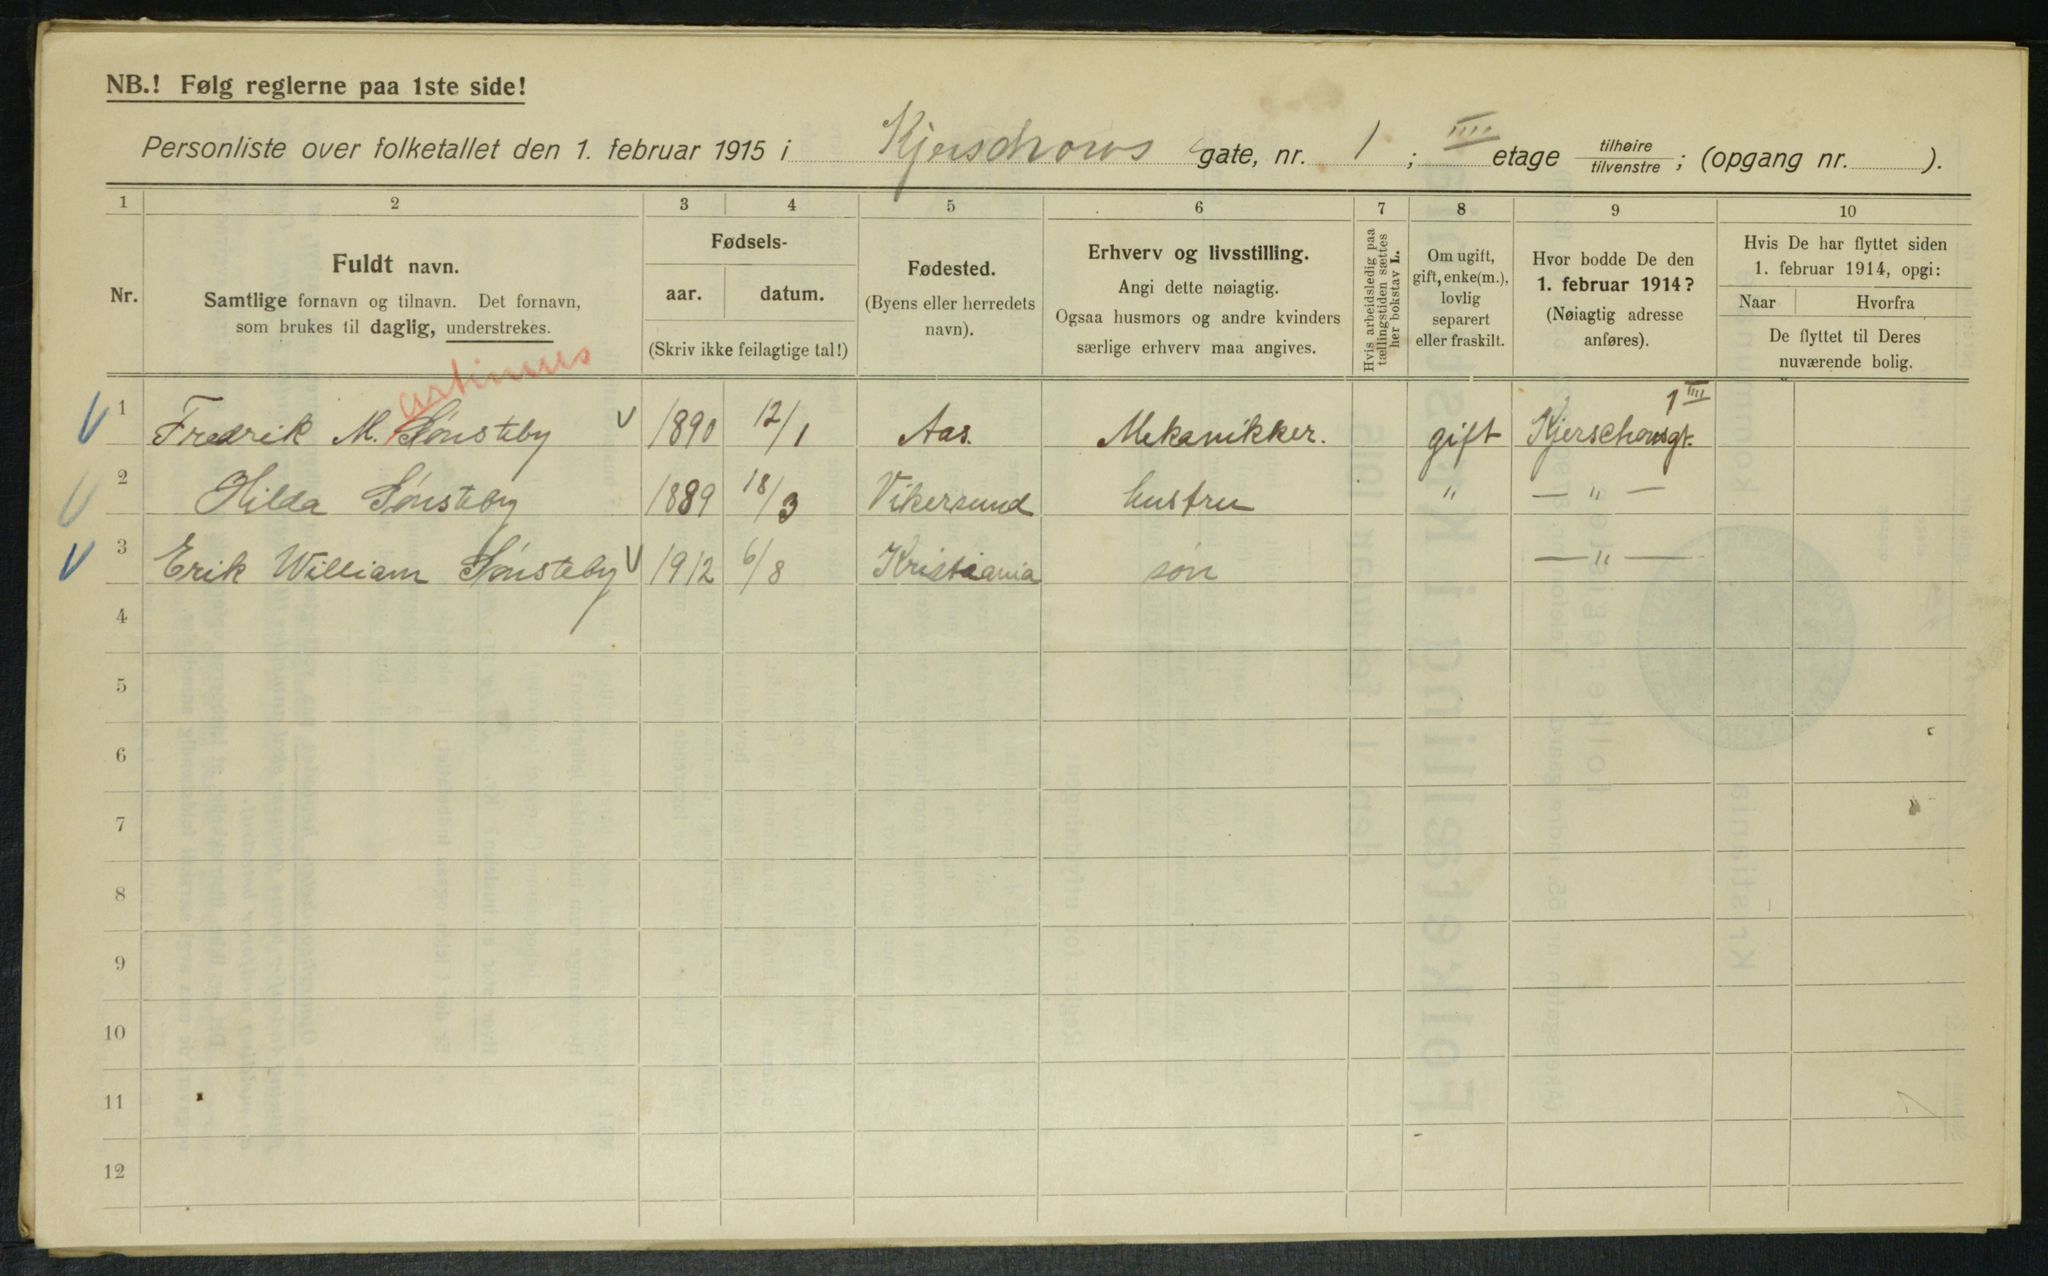 NB.! Følg reglerne paa 1ste side!
Personliste over folketallet den 1. februar 1915 i Kjerschows gate, nr. 1 ; IIII etage tilhøire/tilvenstre ; (opgang nr. ).
1 2 3 4 5 6 7 8 9 10
Nr.
Fuldt navn.
Samtlige fornavn og tilnavn. Det fornavn,
som brukes til daglig, understrekes.
Fødsels-
aar. datum.
(Skriv ikke feilagtige tal!)
Fødested.
(Byens eller herredets
navn).
Erhverv og livsstilling.
Angi dette nøiagtig.
Ogsaa husmors og andre kvinders
særlige erhverv maa angives.
Hvis arbeidsledig paa
tællingstiden sættes
her bokstav L.
Om ugift,
gift, enke(m.),
lovlig
separert
eller fraskilt.
Hvor bodde De den
1. februar 1914?
(Nøiagtig adresse
anføres).
Hvis De har flyttet siden
1. februar 1914, opgi:
Naar Hvorfra
De flyttet til Deres
nuværende bolig.
artinus
1 Fredrik M. Sønsteby V 1890 12/1 Aas. Mekanikker. gift Kjerschowsgt. 1 IIII
2 Hilda Sønsteby 1889 18/3 Vikersund hustru " — " —
3 Erik William Sønsteby V 1912 6/8 Kristiania søn — " —
4
5
6
7
8
9
10
11
12